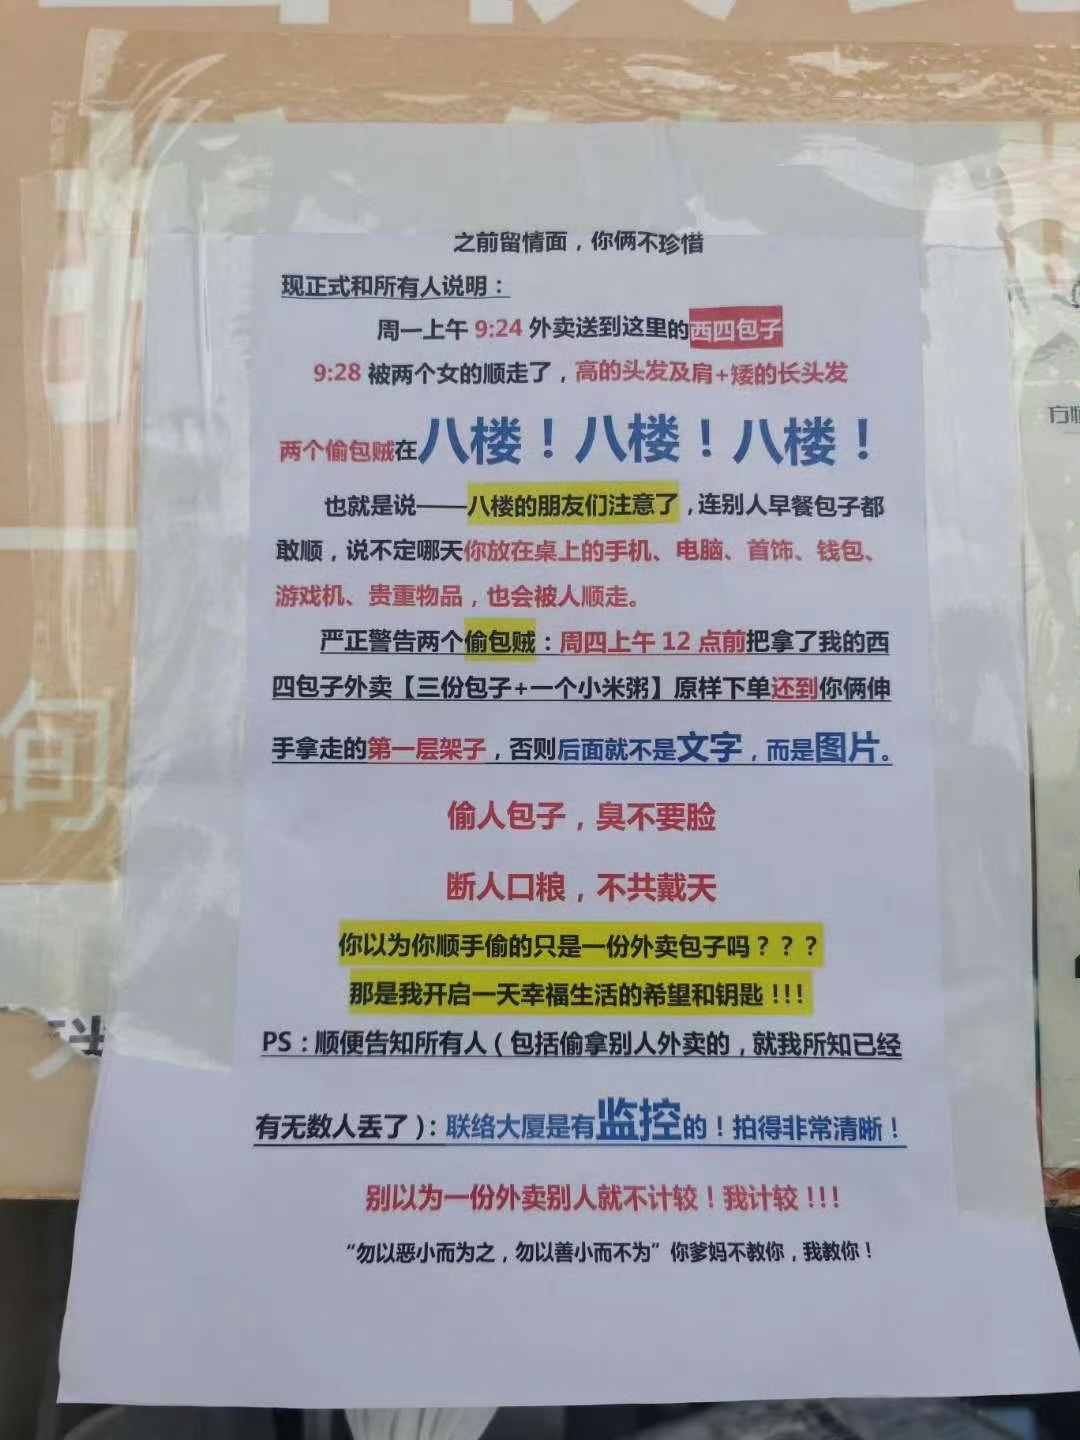 之前留情面，你俩不珍惜
现正式和所有人说明：
周一上午 9:24 外卖送到这里的西四包子
9:28 被两个女的顺走了，高的头发及肩+矮的长头发
两个偷包贼在八楼！八楼！八楼！
也就是说——八楼的朋友们注意了，连别人早餐包子都
敢顺，说不定哪天你放在桌上的手机、电脑、首饰、钱包、
游戏机、贵重物品，也会被人顺走。
严正警告两个偷包贼：周四上午 12 点前把拿了我的西
四包子外卖【三份包子+一个小米粥】原样下单还到你俩伸
手拿走的第一层架子，否则后面就不是文字，而是图片。
偷人包子，臭不要脸
断人口粮，不共戴天
你以为你顺手偷的只是一份外卖包子吗？？？
那是我开启一天幸福生活的希望和钥匙！!!
PS：顺便告知所有人（包括偷拿别人外卖的，就我所知已经
有无数人丢了）：联络大厦是有监控的！拍得非常清晰！
别以为一份外卖别人就不计较！我计较！!!
“勿以恶小而为之，勿以善小而不为”你爹妈不教你，我教你！
旬